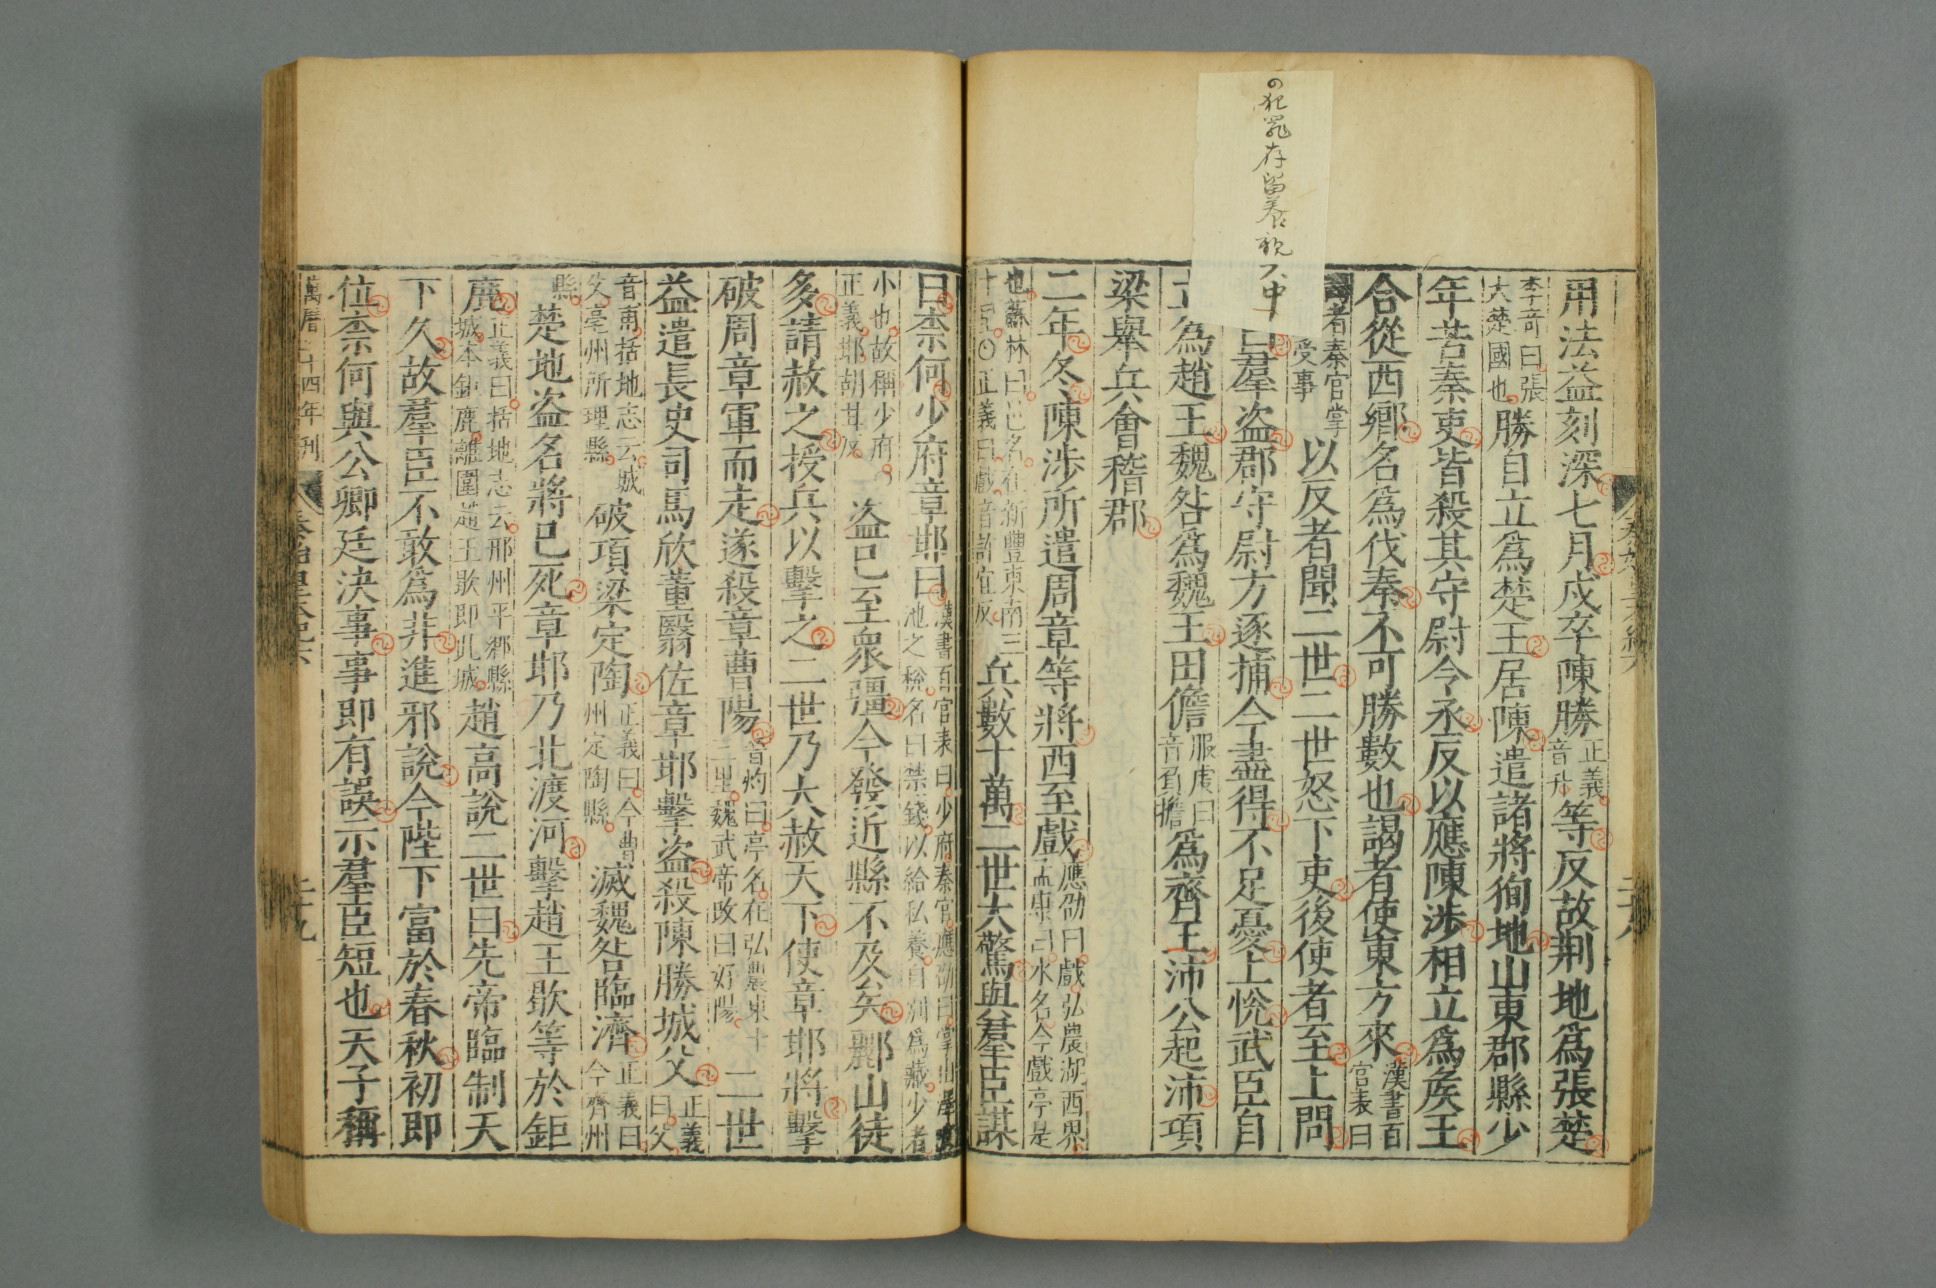 犯罪存留養親不中
用法益刻深七月戍卒陳勝正義音升等反故荆地爲張楚
李奇曰張大楚國也勝自立爲楚王居陳遣諸將徇地山東郡縣少
年苦秦吏皆殺其守尉令丞反以應陳涉相立爲矦王
合從西鄉名爲伐秦不可勝數也謁者使東方來漢書百官表曰
者秦官掌受事以反者聞二世二世怒下吏後使者至上問
曰羣盗郡守尉方逐捕今盡得不足憂上悅武臣自
立爲趙王魏咎爲魏王田儋服虔曰音負擔爲齊王沛公起沛項
梁舉兵會稽郡
二年冬陳涉所遣周章等將西至戲應劭曰戲弘農湖西界孟康曰水名今戲亭是
也蘇林曰邑名在新豐東南三十里〇正義曰戲音許宜反兵數十萬二世大驚與羣臣謀
曰柰何少府章邯曰漢書百官表曰少府秦官應劭曰掌山澤陂池之稅名曰禁錢以給私養自别爲藏少者
小也故稱少府正義邯胡甘反盗已至衆彊今發近縣不及矣酈山徒
多請赦之授兵以擊之二世乃大赦天下使章邯將擊
破周章軍而走遂殺章曹陽晉灼曰亭名在弘農東十三里魏武帝改曰好陽二世
益遣長史司馬欣董翳佐章邯擊盗殺陳勝城父正義曰父
音甫括地志云城父亳州所理縣破項梁定陶正義曰今曹州定陶縣滅魏咎臨濟正義曰今齊州
縣楚地盗名將已死章邯乃北渡河擊趙王歇等於鉅
鹿正義曰括地志云邢州平鄉縣城本鉅鹿離圍趙王歇即此城趙高說二世曰先帝臨制天
下久故羣臣不敢爲非進邪說今陛下富於春秋初即
位柰何與公卿廷決事事即有誤示羣臣短也天子稱
萬曆二十四年刊 秦始皇本紀六 二十九